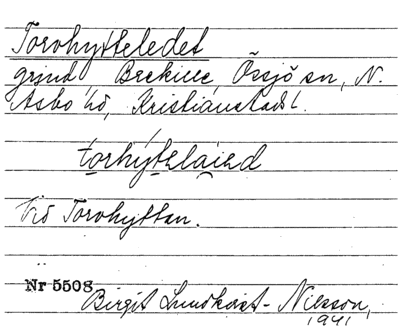 Torvhytteledet
grind Beckille, Össjö sn, N.
Åsbo hd, Kristianstads l.
torhýtelaied
Vid Torvhyttan.
Nr 5508
Birgit Lundkvist-Nilsson,
1941